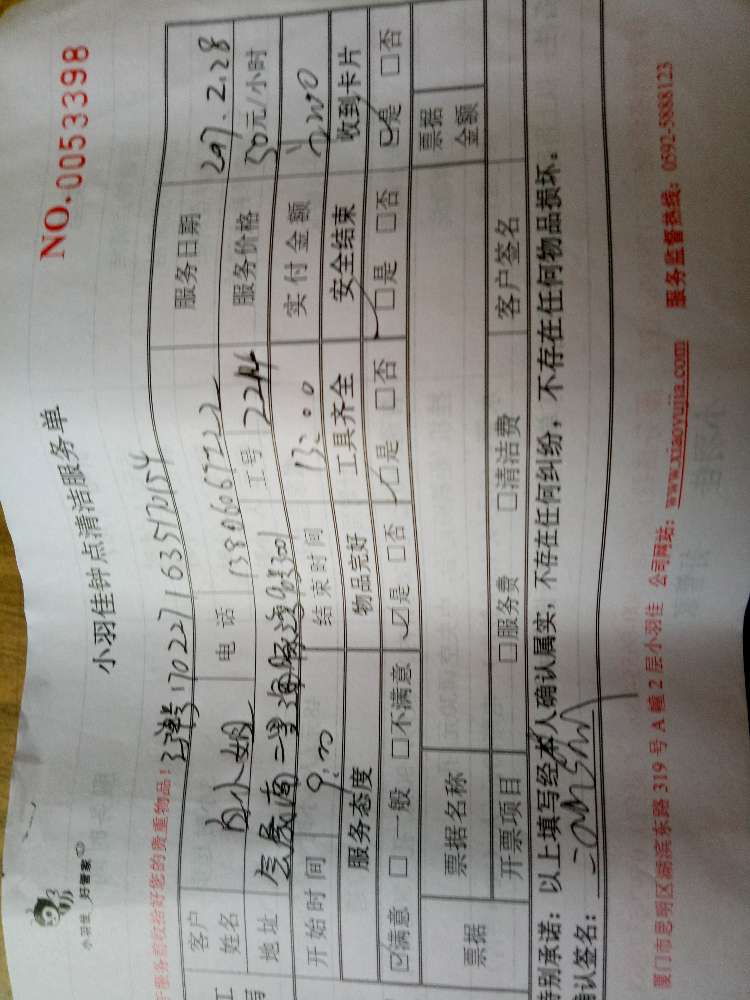 小羽佳 好管家
小羽佳钟点清洁服务单
NO.0053398
服务前收拾好您的贵重物品！
1702271635170154
客户姓名 小姐 电话 服务日期 2017.2.28
地址 工号 2214 服务价格 50元/小时
开始时间 9:00 结束时间 13:00 实付金额
服务态度 物品完好 工具齐全 安全结束 收到卡片
☑满意 □一般 □不满意 ☑是 □否 ☑是 □否 ☑是 □否 ☑是 □否
票据 票据名称 票据金额
开票项目 □服务费 □清洁费 客户签名
特别承诺：以上填写经本人确认属实，不存在任何纠纷，不存在任何物品损坏。
确认签名：
厦门市思明区湖滨东路 319 号 A 幢 2 层小羽佳 公司网站：www.xiaoyujia.com 服务监督热线：0592-5888123